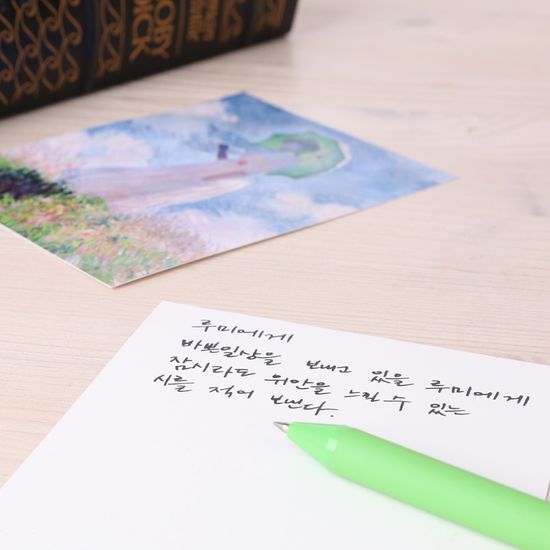 MOBY
DICK
루미에게
바쁜일상을 보내고 있을 루미에게
잠시라도 위안을 느낄수 있는
시를 적어 보낸다.